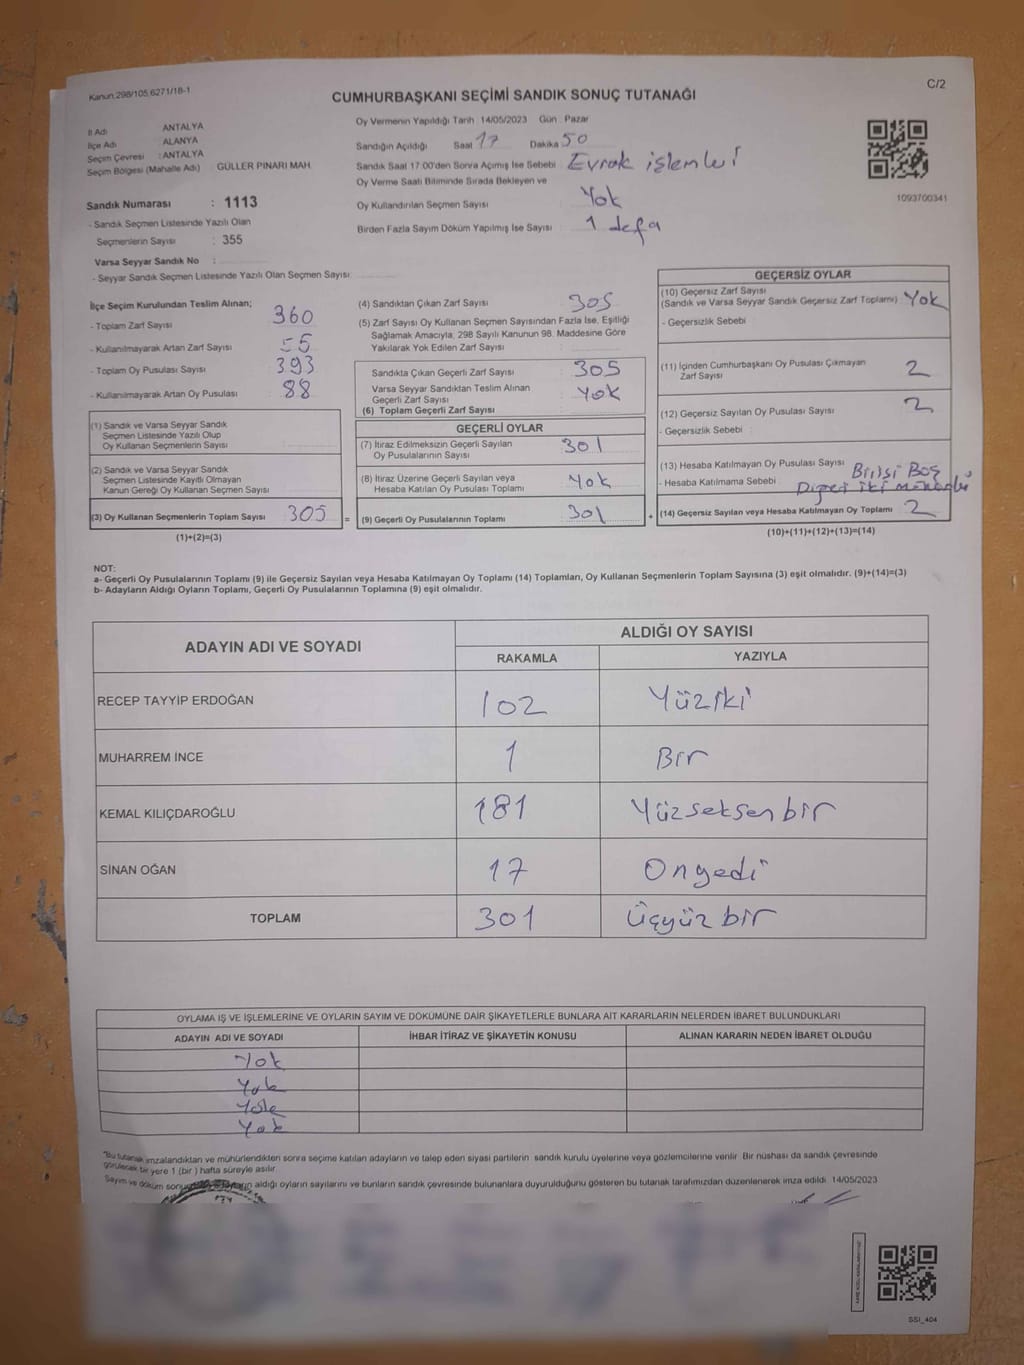 Kanun:298/105,6271/18-1
C/2
CUMHURBAŞKANI SEÇİMİ SANDIK SONUÇ TUTANAĞI
İl Adı ANTALYA
İlçe Adı ALANYA
Seçim Çevresi : ANTALYA
Seçim Bölgesi (Mahalle Adı) GÜLLER PINARI MAH.
Sandık Numarası : 1113
- Sandık Seçmen Listesinde Yazılı Olan
Seçmenlerin Sayısı : 355
Varsa Seyyar Sandık No :
- Seyyar Sandık Seçmen Listesinde Yazılı Olan Seçmen Sayısı
Oy Vermenin Yapıldığı Tarih : 14/05/2023 Gün : Pazar
Sandığın Açıldığı Saat 17 Dakika 50
Sandık Saat 17:00'den Sonra Açımış İse Sebebi : Evrak işlemleri
Oy Verme Saati Bitiminde Sırada Bekleyen ve
Oy Kullandırılan Seçmen Sayısı Yok
Birden Fazla Sayım Döküm Yapılmış İse Sayısı : 1 defa
1093700341
İlçe Seçim Kurulundan Teslim Alınan;
- Toplam Zarf Sayısı : 360
- Kullanılmayarak Artan Zarf Sayısı : 55
- Toplam Oy Pusulası Sayısı : 393
- Kullanılmayarak Artan Oy Pusulası : 88
(1) Sandık ve Varsa Seyyar Sandık
Seçmen Listesinde Yazılı Olup
Oy Kullanan Seçmenlerin Sayısı :
(2) Sandık ve Varsa Seyyar Sandık
Seçmen Listesinde Kayıtlı Olmayan
Kanun Gereği Oy Kullanan Seçmen Sayısı :
(3) Oy Kullanan Seçmenlerin Toplam Sayısı : 305 =
(1)+(2)=(3)
(4) Sandıktan Çıkan Zarf Sayısı : 305
(5) Zarf Sayısı Oy Kullanan Seçmen Sayısından Fazla İse, Eşitliği
Sağlamak Amacıyla; 298 Sayılı Kanunun 98. Maddesine Göre
Yakılarak Yok Edilen Zarf Sayısı :
Sandıkta Çıkan Geçerli Zarf Sayısı : 305
Varsa Seyyar Sandıktan Teslim Alınan
Geçerli Zarf Sayısı : Yok
(6) Toplam Geçerli Zarf Sayısı :
GEÇERLİ OYLAR
(7) İtiraz Edilmeksizin Geçerli Sayılan
Oy Pusulalarının Sayısı : 301
(8) İtiraz Üzerine Geçerli Sayılan veya
Hesaba Katılan Oy Pusulası Toplamı : Yok
(9) Geçerli Oy Pusulalarının Toplamı : 301 +
GEÇERSİZ OYLAR
(10) Geçersiz Zarf Sayısı
(Sandık ve Varsa Seyyar Sandık Geçersiz Zarf Toplamı) Yok
- Geçersizlik Sebebi :
(11) İçinden Cumhurbaşkanı Oy Pusulası Çıkmayan
Zarf Sayısı : 2
(12) Geçersiz Sayılan Oy Pusulası Sayısı : 2
- Geçersizlik Sebebi :
(13) Hesaba Katılmayan Oy Pusulası Sayısı :
- Hesaba Katılmama Sebebi : Birisi Boş
Diğeri iki mühürlü
(14) Geçersiz Sayılan veya Hesaba Katılmayan Oy Toplamı : 2
(10)+(11)+(12)+(13)=(14)
NOT:
a- Geçerli Oy Pusulalarının Toplamı (9) ile Geçersiz Sayılan veya Hesaba Katılmayan Oy Toplamı (14) Toplamları, Oy Kullanan Seçmenlerin Toplam Sayısına (3) eşit olmalıdır. (9)+(14)=(3)
b- Adayların Aldığı Oyların Toplamı, Geçerli Oy Pusulalarının Toplamına (9) eşit olmalıdır.
ADAYIN ADI VE SOYADI ALDIĞI OY SAYISI
RAKAMLA YAZIYLA
RECEP TAYYİP ERDOĞAN 102 Yüziki
MUHARREM İNCE 1 Bir
KEMAL KILIÇDAROĞLU 181 Yüzseksenbir
SİNAN OĞAN 17 Onyedi
TOPLAM 301 Üçyüzbir
OYLAMA İŞ VE İŞLEMLERİNE VE OYLARIN SAYIM VE DÖKÜMÜNE DAİR ŞİKAYETLERLE BUNLARA AİT KARARLARIN NELERDEN İBARET BULUNDUKLARI
ADAYIN ADI VE SOYADI İHBAR İTİRAZ VE ŞİKAYETİN KONUSU ALINAN KARARIN NEDEN İBARET OLDUĞU
Yok
Yok
Yok
Yok
"Bu tutanak imzalandıktan ve mühürlendikten sonra seçime katılan adayların ve talep eden siyasi partilerin sandık kurulu üyelerine veya gözlemcilerine verilir. Bir nüshası da sandık çevresinde
görülecek bir yere 1 (bir ) hafta süreyle asılır.
Sayım ve döküm aldığı oyların sayılarını ve bunların sandık çevresinde bulunanlara duyurulduğunu gösteren bu tutanak tarafımızdan düzenlenerek imza edildi. 14/05/2023
SSI_404